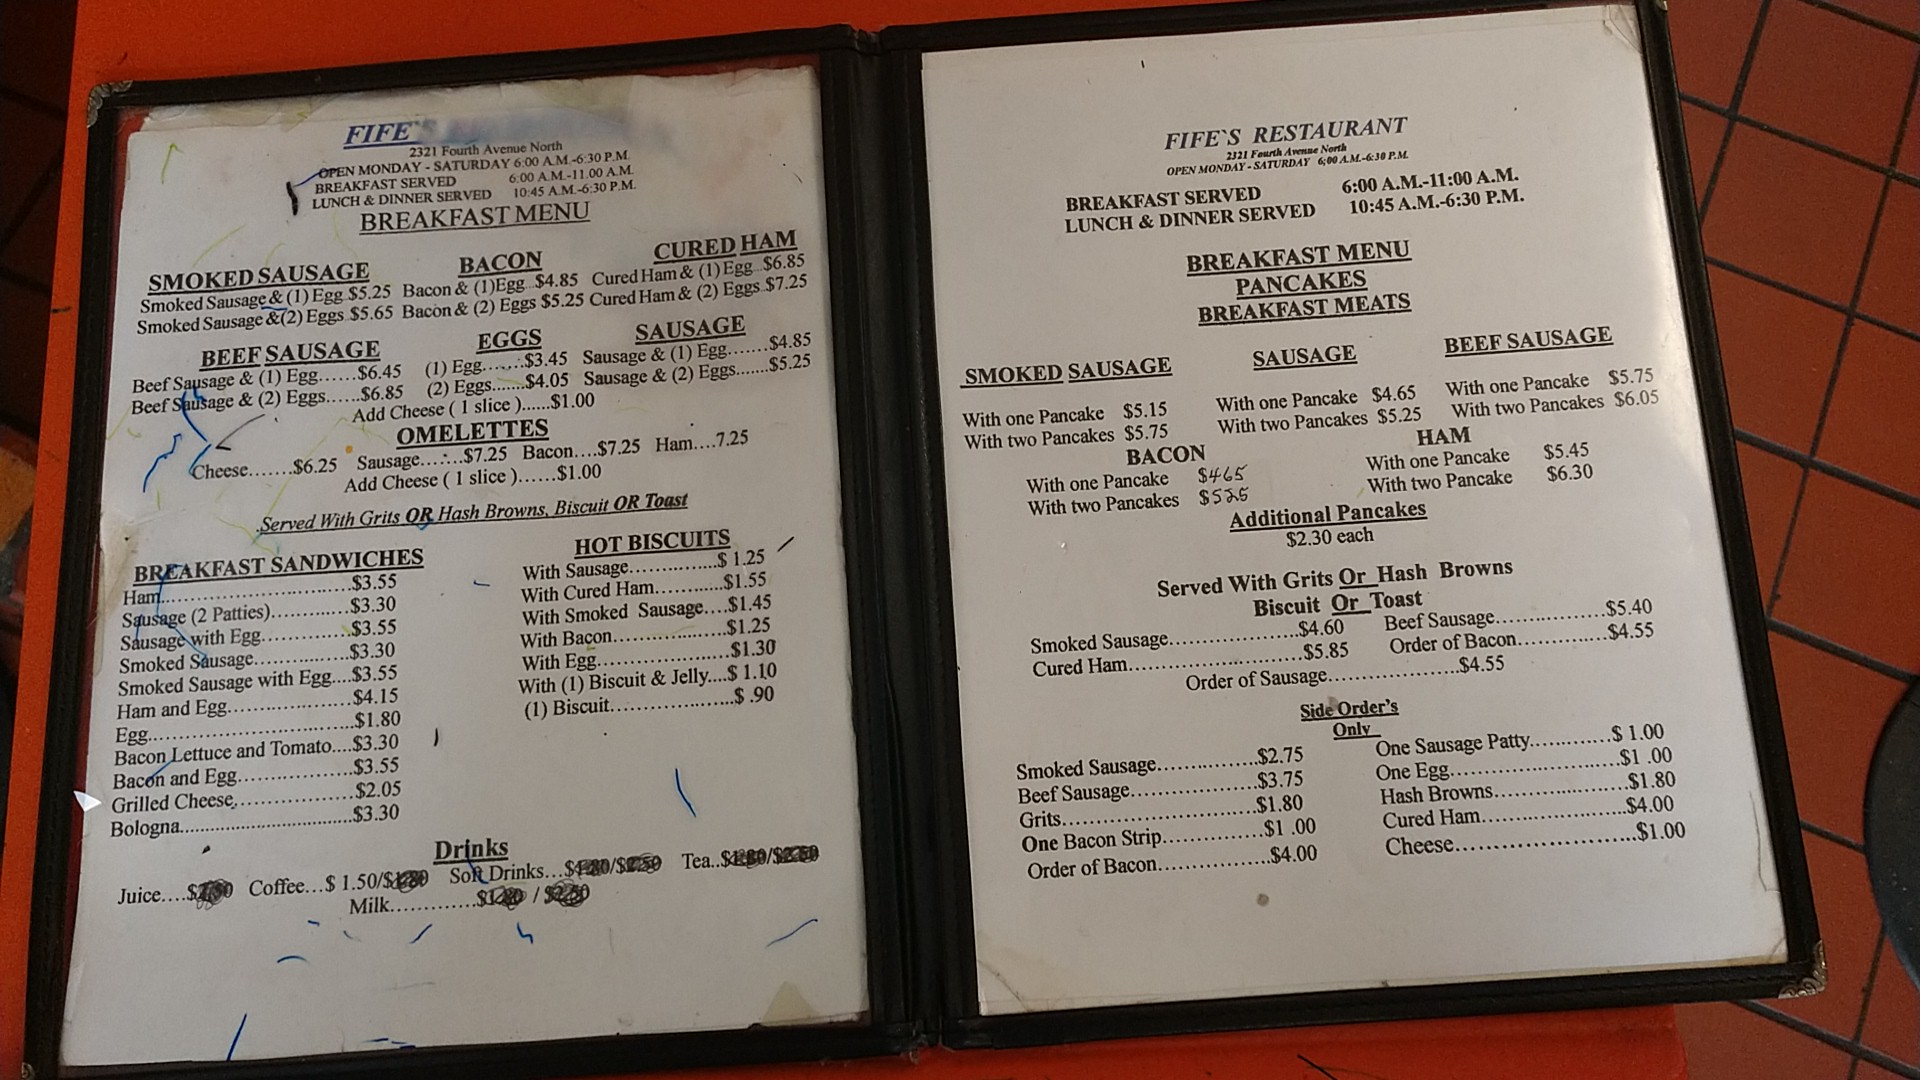 FIFE'S
2321 Fourth Avenue North
OPEN MONDAY - SATURDAY 6:00 A.M.-6:30 P.M.
BREAKFAST SERVED 6:00 A.M.-11.00 A.M.
LUNCH & DINNER SERVED 10:45 A.M.-6:30 P.M.
BREAKFAST MENU
SMOKED SAUSAGE BACON CURED HAM
Smoked Sausage & (1) Egg $5.25 Bacon & (1)Egg $4.85 Cured Ham & (1) Egg $6.85
Smoked Sausage &(2) Eggs $5.65 Bacon & (2) Eggs $5.25 Cured Ham & (2) Eggs $7.25
BEEF SAUSAGE EGGS SAUSAGE
Beef Sausage & (1) Egg......$6.45 (1) Egg........$3.45 Sausage & (1) Egg.......$4.85
Beef Sausage & (2) Eggs......$6.85 (2) Eggs.......$4.05 Sausage & (2) Eggs.......$5.25
Add Cheese ( 1 slice )......$1.00
OMELETTES
Cheese.......$6.25 Sausage........$7.25 Bacon....$7.25 Ham....7.25
Add Cheese ( 1 slice )......$1.00
Served With Grits OR Hash Browns, Biscuit OR Toast
BREAKFAST SANDWICHES
Ham..............................$3.55
Sausage (2 Patties)............$3.30
Sausage with Egg..............$3.55
Smoked Sausage...............$3.30
Smoked Sausage with Egg....$3.55
Ham and Egg...................$4.15
Egg................................$1.80
Bacon Lettuce and Tomato....$3.30
Bacon and Egg.................$3.55
Grilled Cheese..................$2.05
Bologna...............................$3.30
HOT BISCUITS
With Sausage...............$ 1.25
With Cured Ham............$1.55
With Smoked Sausage....$1.45
With Bacon...................$1.25
With Egg......................$1.30
With (1) Biscuit & Jelly....$ 1.10
(1) Biscuit.....................$ .90
Drinks
Juice....$ Coffee...$ 1.50/$ Soft Drinks...$ /$ Tea..$ /$
Milk.............$ / $
FIFE`S RESTAURANT
2321 Fourth Avenue North
OPEN MONDAY - SATURDAY 6;00 A.M.-6:30 P.M.
BREAKFAST SERVED 6:00 A.M.-11:00 A.M.
LUNCH & DINNER SERVED 10:45 A.M.-6:30 P.M.
BREAKFAST MENU
PANCAKES
BREAKFAST MEATS
SMOKED SAUSAGE SAUSAGE BEEF SAUSAGE
With one Pancake $5.15 With one Pancake $4.65 With one Pancake $5.75
With two Pancakes $5.75 With two Pancakes $5.25 With two Pancakes $6.05
BACON HAM
With one Pancake $465 With one Pancake $5.45
With two Pancakes $525 With two Pancake $6.30
Additional Pancakes
$2.30 each
Served With Grits Or Hash Browns
Biscuit Or Toast
Smoked Sausage.....................$4.60 Beef Sausage..................$5.40
Cured Ham............................$5.85 Order of Bacon...............$4.55
Order of Sausage......................$4.55
Side Order's
Only
Smoked Sausage................$2.75
Beef Sausage.....................$3.75
Grits................................$1.80
One Bacon Strip................$1 .00
Order of Bacon..................$4.00
One Sausage Patty.............$ 1.00
One Egg...........................$1 .00
Hash Browns......................$1.80
Cured Ham........................$4.00
Cheese.............................$1.00